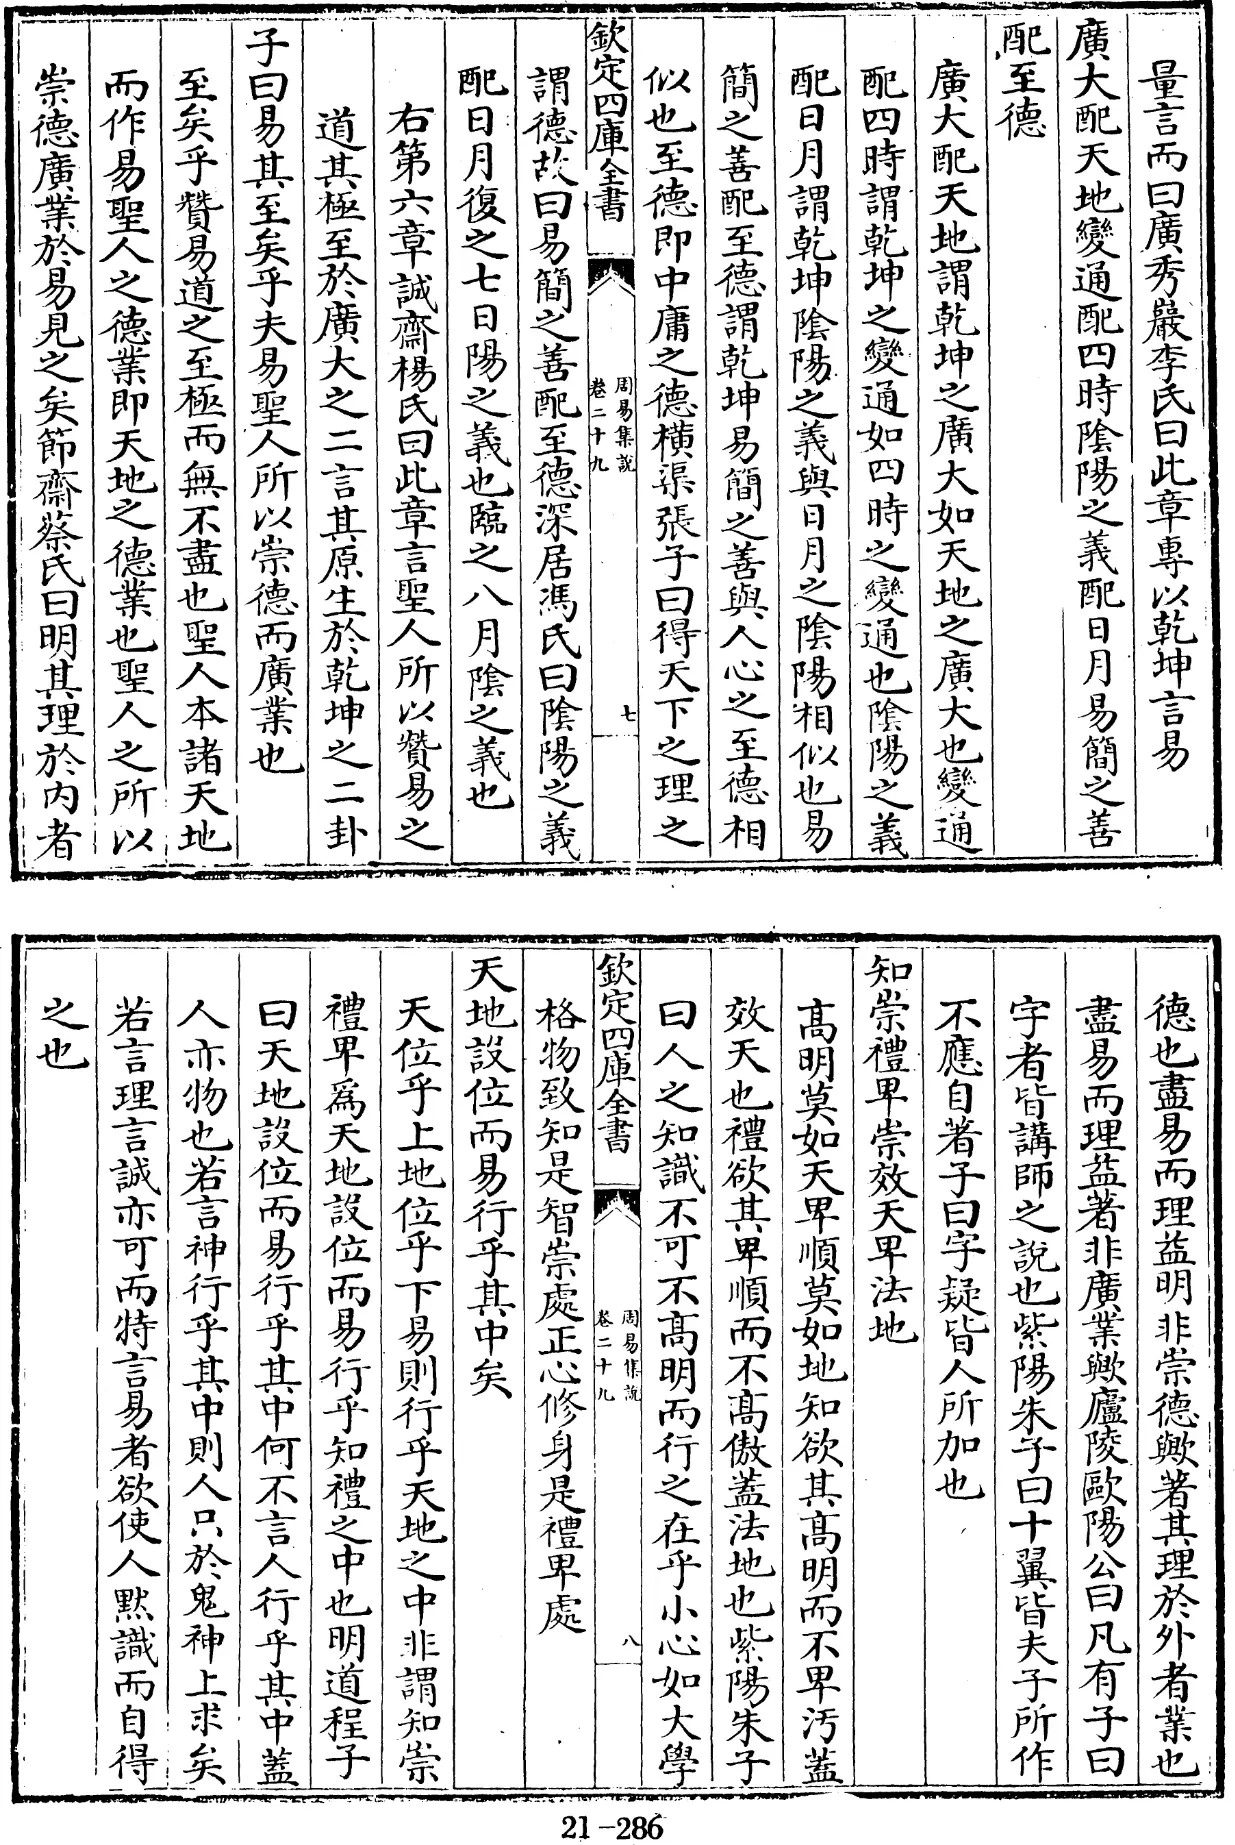 量言而曰廣秀巖李氏曰此章專以乾坤言易
廣大配天地變通配四時陰陽之義配日月易簡之善
配至德
廣大配天地謂乾坤之廣大如天地之廣大也變通
配四時謂乾坤之變通如四時之變通也陰陽之義
配日月謂乾坤陰陽之義與日月之陰陽相似也易
簡之善配至德謂乾坤易簡之善與人心之至德相
似也至德即中庸之德橫渠張子曰得天下之理之
欽定四庫全書
周易集說
卷二十九
七
謂德故曰易簡之善配至德深居馮氏曰陰陽之義
配日月復之七日陽之義也臨之八月陰之義也
右第六章誠齋楊氏曰此章言聖人所以贊易之
道其極至於廣大之二言其原生於乾坤之二卦
子曰易其至矣乎夫易聖人所以崇德而廣業也
至矣乎贊易道之至極而無不盡也聖人本諸天地
而作易聖人之德業即天地之德業也聖人之所以
崇德廣業於易見之矣節齋蔡氏曰明其理於内者
德也盡易而理益明非崇德歟著其理於外者業也
盡易而理益著非廣業歟廬陵歐陽公曰凡有子曰
字者皆講師之說也紫陽朱子曰十翼皆夫子所作
不應自著子曰字疑皆人所加也
知崇禮卑崇效天卑法地
髙明莫如天卑順莫如地知欲其髙明而不卑汚蓋
效天也禮欲其卑順而不髙傲蓋法地也紫陽朱子
曰人之知識不可不髙明而行之在乎小心如大學
欽定四庫全書
周易集說
卷二十九
八
格物致知是智崇處正心修身是禮卑處
天地設位而易行乎其中矣
天位乎上地位乎下易則行乎天地之中非謂知崇
禮卑爲天地設位而易行乎知禮之中也明道程子
曰天地設位而易行乎其中何不言人行乎其中蓋
人亦物也若言神行乎其中則人只於鬼神上求矣
若言理言誠亦可而特言易者欲使人默識而自得
之也
21-286